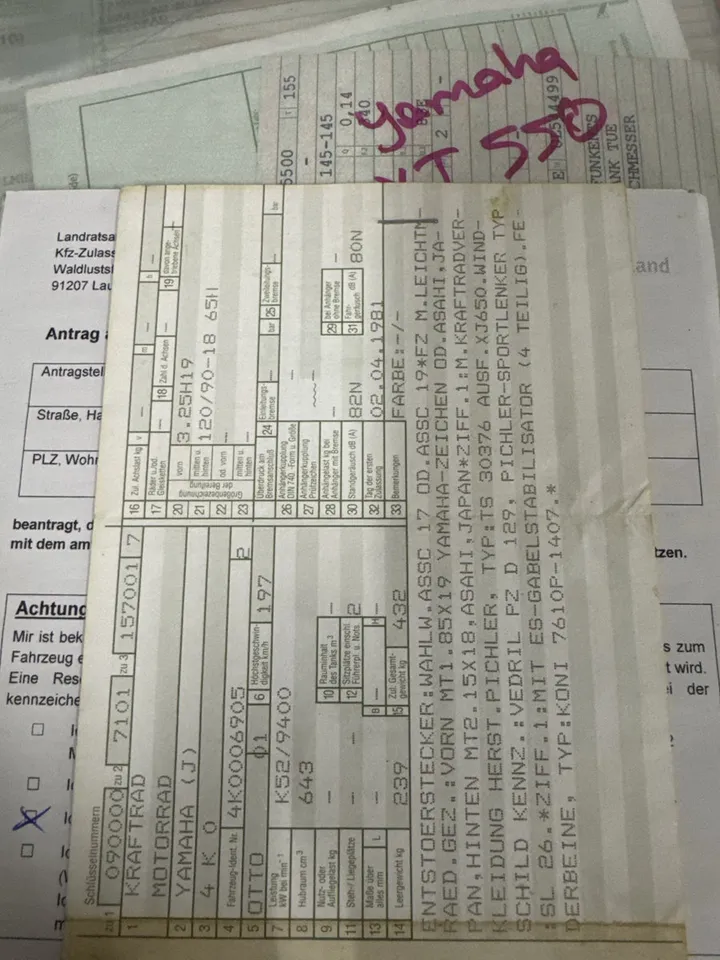 Yamaha
XJ 550
5500
T
155
145-145
Q
0,14
40
E
FUNKENTS
ANK TUE
CHMESSER
Landratsa
Kfz-Zulass
Waldlustst
91207 Lau
Antrag
Antragstel
Straße, Ha
PLZ, Wohr
beantragt, d
mit dem am
tzen.
Achtung
Mir ist bek
s zum
Fahrzeug e
t wird.
Eine Res
ei der
kennzeiche
Schlüsselnummern
zu 1 090000 zu 2 7101 zu 3 157001 7
1 KRAFTRAD
MOTORRAD
2 YAMAHA (J)
3 4 K 0
4 Fahrzeug-Ident. Nr. 4K0006905 2
5 OTTO 01 6 Höchstgeschwin-digkeit km/h 197
7 Leistung kW bei min-1 K52/9400
8 Hubraum cm3 643
9 Nutz- oder Aufliegelast kg — 10 Rauminhalt des Tanks m3 —
11 Steh-/ Liegeplätze — 12 Sitzplätze einschl. Führerpl. u. Nots. 2
13 Maße über alles mm L — B — H —
14 Leergewicht kg 239 15 Zul. Gesamt-gewicht kg 432
16 Zul. Achslast kg v — m — h —
17 Räder u./od. Gleisketten — 18 Zahl d. Achsen — 19 davon ange-triebene Achsen —
Größenbezeichnung der Bereifung
20 vorn 3.25H19
21 mitten u. hinten 120/90-18 65H
22 od. vorn —
23 mitten u. hinten —
24 Überdruck am Bremsanschluß Einleitungs-bremse — bar 25 Zweileitungs-bremse — bar
26 Anhängerkupplung DIN 740.. -Form u. Größe —
27 Anhängerkupplung Prüfzeichen
28 Anhängelast kg bei Anhänger mit Bremse — 29 bei Anhänger ohne Bremse —
30 Standgeräusch dB (A) 82N 31 Fahr-geräusch dB (A) 80N
32 Tag der ersten Zulassung 02.04.1981
33 Bemerkungen FARBE:-/-
ENTSTOERSTECKER:WAHLW.ASSC 17 OD.ASSC 19*FZ M.LEICHTM-
RAED.GEZ.:VORN MT1.85X19 YAMAHA-ZEICHEN OD.ASAHI,JA-
PAN,HINTEN MT2.15X18,ASAHI,JAPAN*ZIFF.1:M.KRAFTRADVER-
KLEIDUNG HERST.PICHLER, TYP:TS 30376 AUSF.XJ650.WIND-
SCHILD KENNZ.:VEDRIL PZ D 129, PICHLER-SPORTLENKER TYP
:SL 26.*ZIFF.1:MIT ES-GABELSTABILISATOR (4 TEILIG).FE-
DERBEINE, TYP:KONI 7610P-1407.*